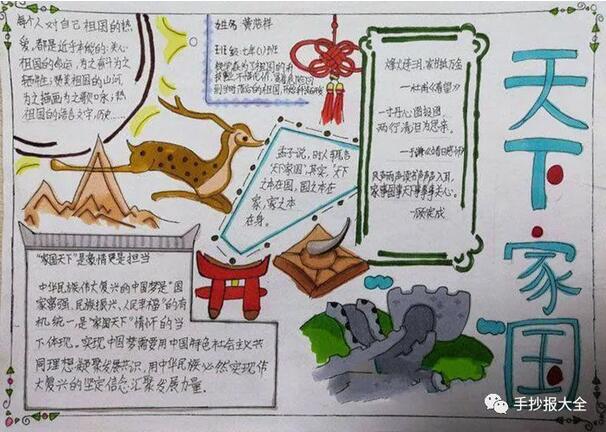 每个人对自己祖国的热
爱,都是近乎本能的:关心
祖国的命运,为之奋斗为之
牺牲;赞美祖国的山河
为之描画为之歌咏;热
祖国的语言文字,历史……
姓名 黄浩祥
班级:七年(1)班
烽火连三月,家书抵万金
——杜甫《春望》
一寸丹心图报国,
两行清泪为思亲。
——于谦
风声雨声读书声声声入耳,
家事国事天下事事事关心。
——顾宪成
孟子说,时人都言
天下家国",其实,"天下
之本在国,国之本在
家,家之本
在身。
"家国天下"是豪情更是担当
中华民族伟大复兴的中国梦是"国
家富强、民族振兴、人民幸福"的有
机统一,是"家国天下"情怀的当
下体现。实现中国梦需要用中国特色社会主义共
同理想凝聚发展共识,用中华民族必然实现伟
大复兴的坚定信念汇聚发展力量。
天下·家国
手抄报大全